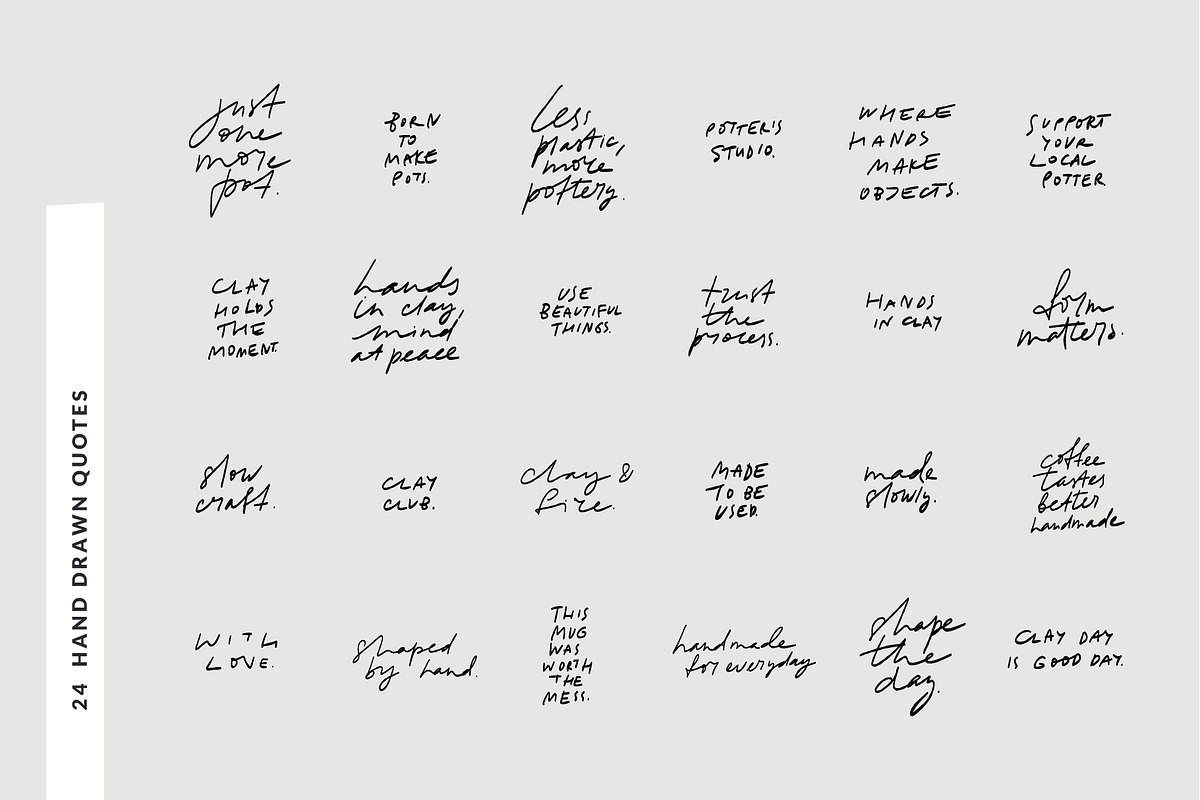 just
one
more
pot.
BORN
TO
MAKE
POTS.
Less
plastic,
more
pottery.
POTTER'S
STUDIO.
WHERE
HANDS
MAKE
OBJECTS.
SUPPORT
YOUR
LOCAL
POTTER.
CLAY
HOLDS
THE
MOMENT.
hands
in clay,
mind
at peace
USE
BEAUTIFUL
THINGS.
trust
the
process.
HANDS
IN CLAY
form
matters.
slow
craft.
CLAY
CLUB.
clay &
fire.
MADE
TO BE
USED.
made
slowly.
coffee
tastes
better
handmade
WITH
LOVE.
shaped
by hand.
THIS
MUG
WAS
WORTH
THE
MESS.
handmade
for everyday
shape
the
day.
CLAY DAY
IS GOOD DAY.
24 HAND DRAWN QUOTES